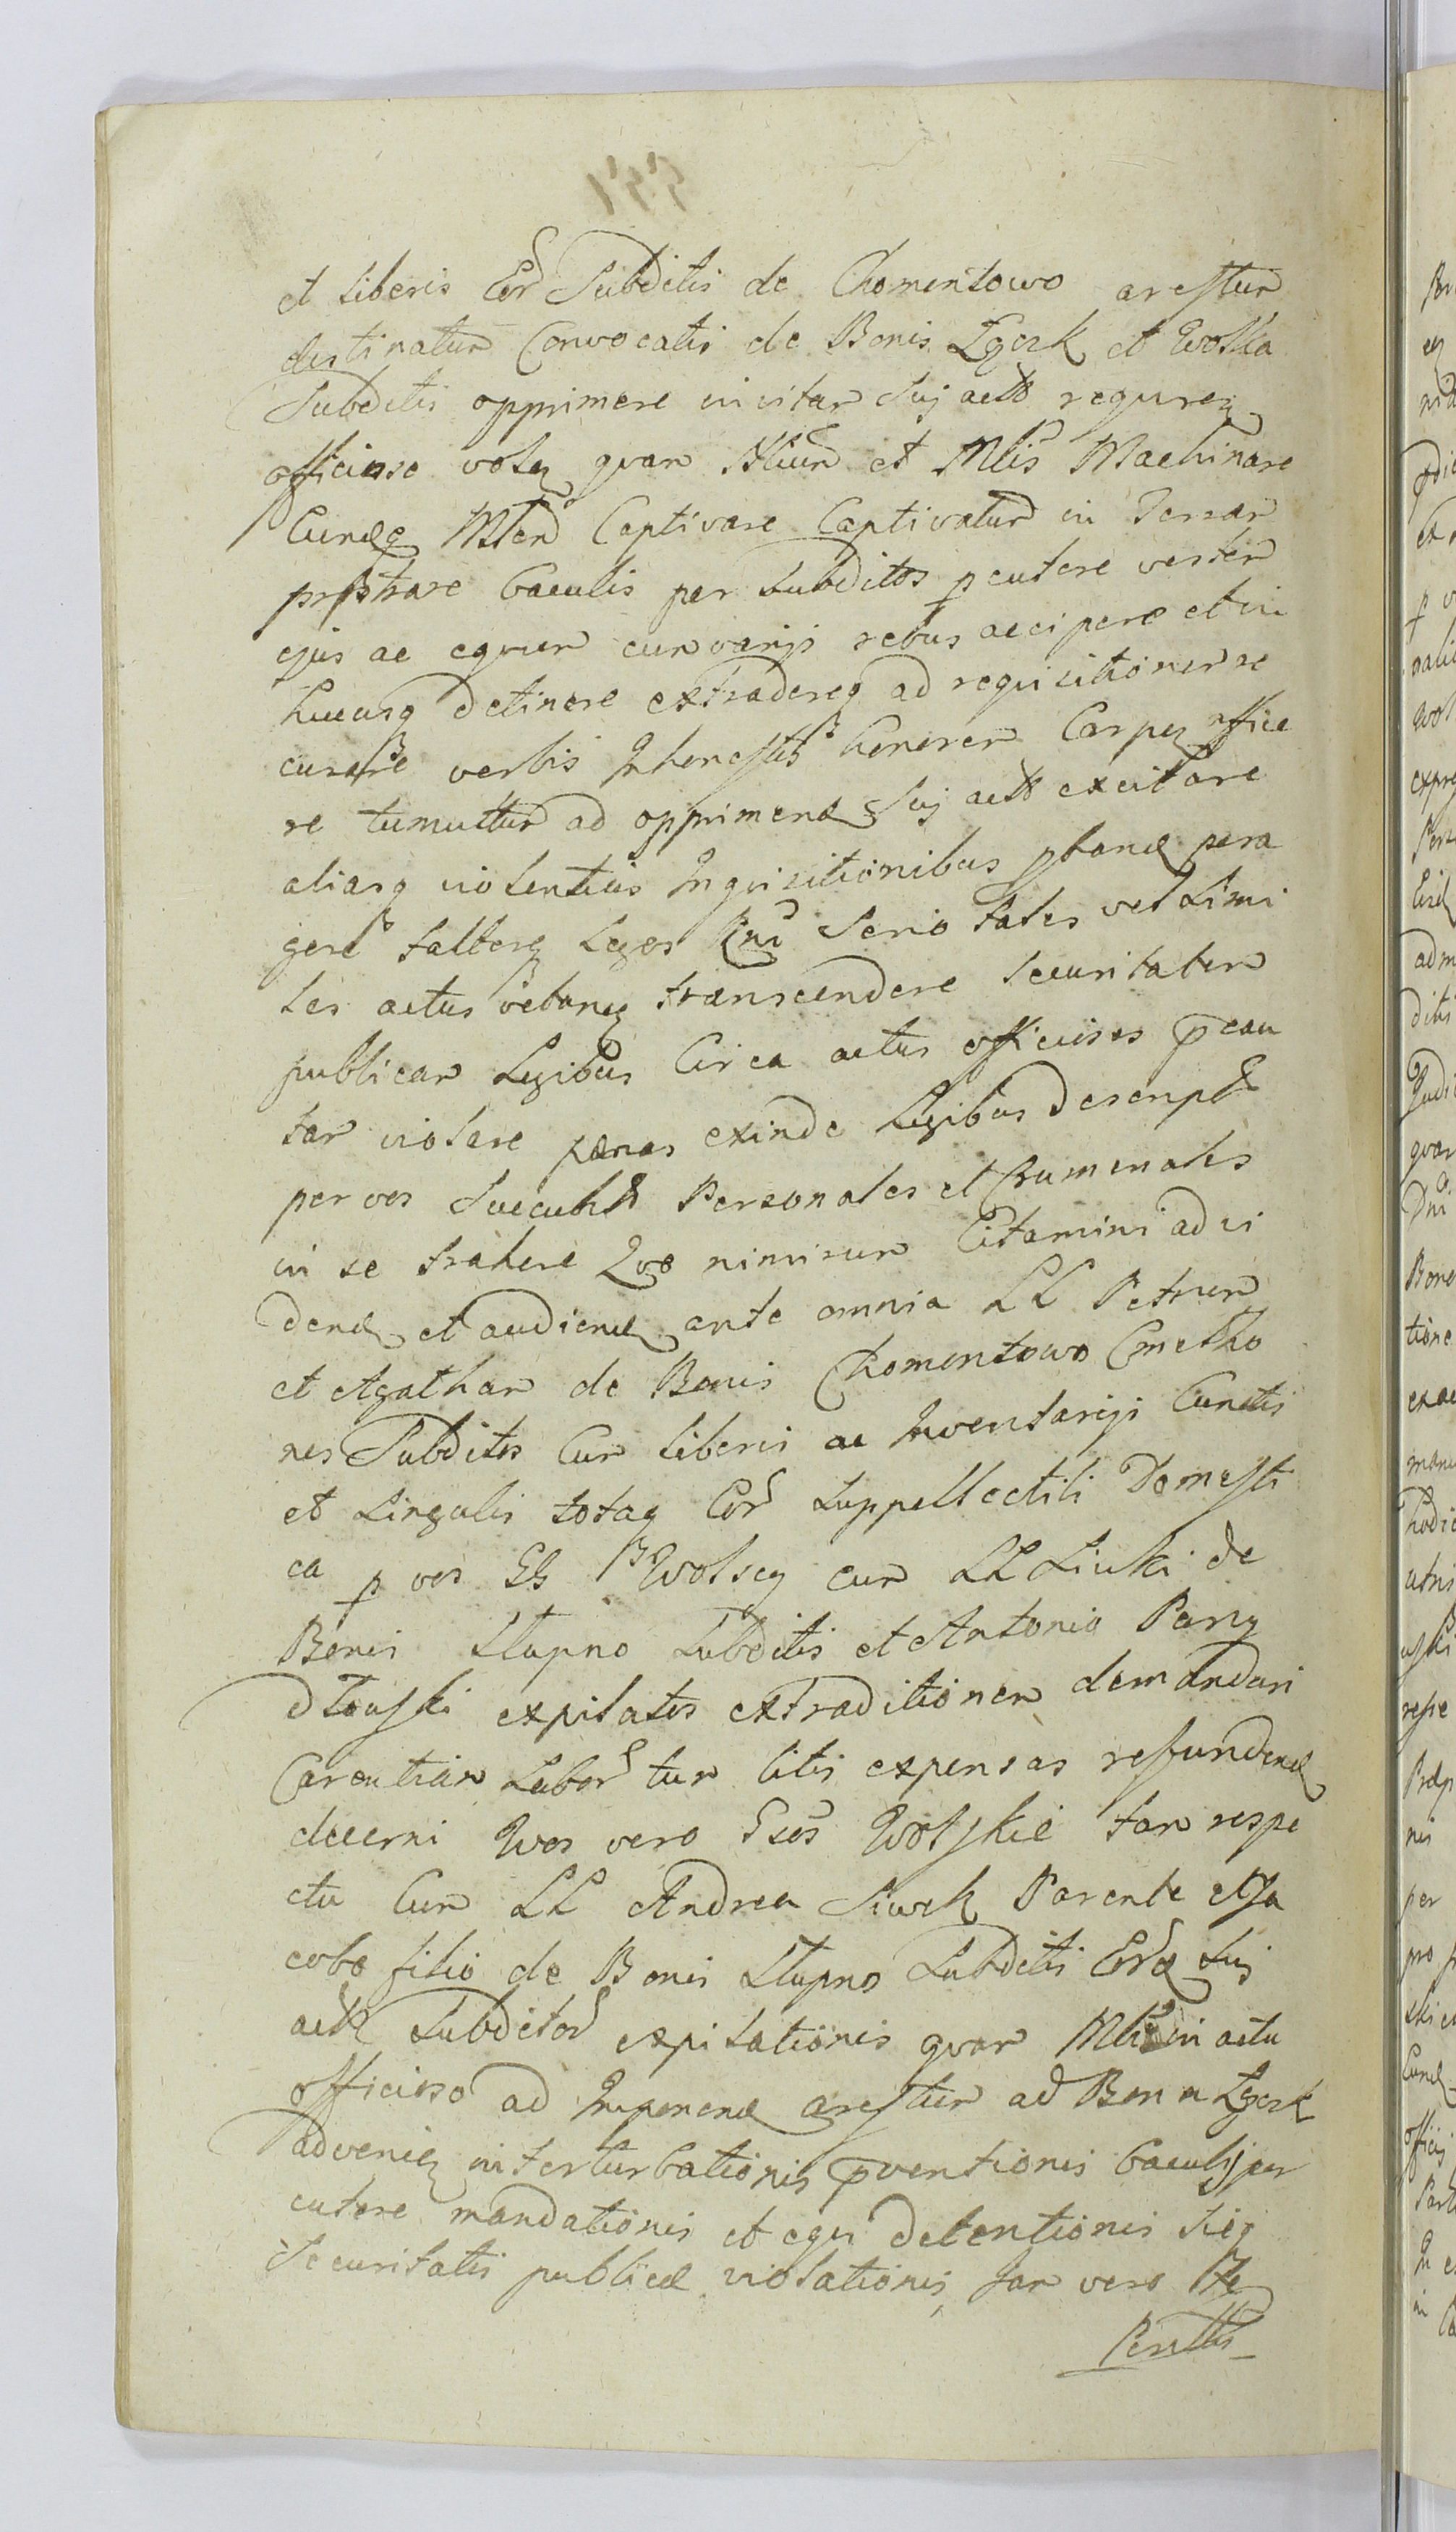 et liberis Eor Subditis de Chomentowo arestum
destinatum Convocatis de Bonis Lgczk et Wolka
Subditis opprimere invitar Suj actt requreq
officiose volq quam et Mlis Machinare
Eundq Mtem Captivare Captivatum in Terram
prostrare baculis per Subditos pcutere vestem
ejus ac equum cum varijs rebus accipere et in
hucusq detinere extradereq ad requisitionem ne
curare verbis Inhonestis honorem Carpeq affice
re tumultum ad opprimend Suj actt excitare
aliasq violentias Inquisitionibus pband pera
gere talterq Leges Rni Serio tales vel Simi
les actus vetanq transcendere Securitatem
publicam Legibus Circa actus officiosos pcau
tam violare pænas exinde Legibus descript
per vos Succubit Personales et Criminales
in se trahere Quo nimirum Citamini ad vi
dend et audiend ante omnia LL Petrum
et Agatham de Bonis Chomentowo Cmetho
nes Subditos Cum liberis ac Inventarijs Cunctis
et Singulis totaq Eor Suppellectili Domesti
ca p vos GG Wolscy cum LL Siuki de
Bonis Stupno Subditis et Antonio Parzy
dlouski expilatos extraditionem demandari
Carentiam Labor tum litis expensas refundend
decerni Wos vero Gsos Wolskie tam respe
ctu Cum LL Andrea Siwek Parente et Ja
cobo filio de Bonis Stupno Subditis Eorq Suj
actt Subditor expilationis quam Mlis in actu
officioso ad Imponend arestum ad Bona Lgczk
advenieq interturbationis pventionis baculis per
cutere mandationis et equi detentionis sicq
Securitatis publicæ violationis tam vero